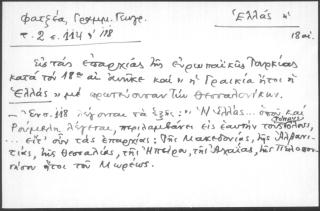 Φατζέα, Γραμμ. Γεωγρ. Ἑλλάς ἡ
τ. 2 σ. 114 ἡ 118 18 αἰ.
Εἰς τὰς ἐπαρχίας τῆς εὐρωπαϊκῆς Τουρκίας
κατὰ τὸν 18ον αἰ. ἀνῆκε καὶ " ἡ Γραικία ἤτοι ἡ
Ἑλλὰς " μὲ πρωτεύουσαν τὴν Θεσσαλονίκην.
- Ἐν σ. 118 λέγονται τὰ ἑξῆς: " Ἡ Ἑλλὰς... ὁποῦ καὶ
Ρούμελη λέγεται, περιλαμβάνει εἰς ἑαυτὴν τόπους
... εἰς τὰς ἐπαρχίας: Τῆς Μακεδονίας, τῆς Ἀλβανι-
τίας, τῆς Θεσσαλίας, τῆς Ἠπείρου, τῆς Ἀχαΐας, τῆς Πελοπον-
νήσου ἤτοι τοῦ Μωρέως.